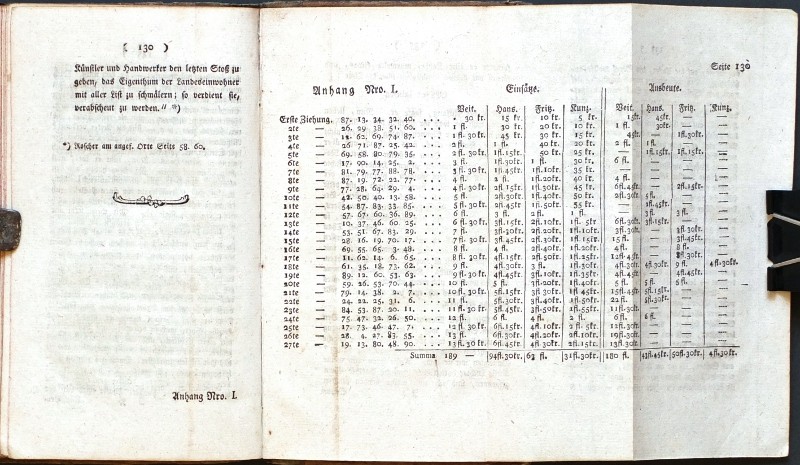 ( 130 )
Künstler und Handwerker den letzten Stoß zu
geben, das Eigenthum der Landeseinwohner
mit aller List zu schmälern; so verdient sie,
verabscheut zu werden." *)
*) Roscher am angef. Orte Seite 58. 60.
Anhang Nro. I.
Seite 130
Anhang Nro. I. Einsätze. Ausbeute.
Veit. Hans. Fritz. Kunz. Veit. Hans. Fritz. Kunz.
Erste Ziehung. 87. 13. 34. 32. 40. . . . 30 kr. 15 kr. 10 kr. 5 kr. 15kr. 45kr. — —
2te — 26. 29. 38. 51. 60. . . . 1 fl. 30 kr. 20 kr. 10 kr. 1 fl. 30kr. — —
3te — 12. 62. 39. 74. 87. . . . 1 fl. 30kr. 45 kr. 30 kr. 15 kr. — — 1fl.30kr. —
4te — 26. 71. 87. 25. 42. . . . 2 fl. 1 fl. 40 kr. 20 kr. 2 fl. 1 fl. — —
5te — 69. 58. 80. 79. 35. . . . 2 fl. 30kr. 1fl.15kr. 50 kr. 25 kr. — 1fl.15kr. 1fl.15kr. —
6te — 17. 90. 14. 25. 2. . . . 3 fl. 1fl.30kr. 1 fl. 30 kr. 6 fl. — — —
7te — 81. 79. 77. 88. 78. . . . 3 fl. 30kr. 1fl.45kr. 1fl.10kr. 35 kr. — — — —
8te — 87. 19. 72. 22. 77. . . . 4 fl. 2 fl. 1fl.20kr. 40 kr. 4 fl. — — —
9te — 77. 28. 64. 29. 4. . . . 4 fl. 30kr. 2fl.15kr. 1fl.30kr. 45 kr. 6fl.45kr. — 2fl.15kr. —
10te — 42. 50. 40. 13. 58. . . . 5 fl. 2fl.30kr. 1fl.40kr. 50 kr. 2fl.30kr. 5 fl. — —
11te — 54. 87. 83. 33. 85. . . . 5 fl. 30kr. 2fl.45kr. 1fl.50kr. 55 kr. — 1fl.45kr. — —
12te — 57. 67. 60. 36. 89. . . . 6 fl. 3 fl. 2 fl. 1 fl. — 3 fl. 3 fl. —
13te — 10. 37. 46. 60. 25. . . . 6 fl. 30kr. 3fl.15kr. 2fl.10kr. 1fl. 5kr 6fl.30kr. 3fl.15kr. — —
14te — 53. 51. 67. 83. 29. . . . 7 fl. 3fl.30kr. 2fl.20kr. 1fl.10kr. 3fl.30kr. — 3fl.30kr. —
15te — 28. 16. 19. 70. 17. . . . 7 fl. 30kr. 3fl.45kr. 2fl.30kr. 1fl.15kr. 15 fl. — 3fl.45kr. —
16te — 69. 55. 65. 3. 48. . . . 8 fl. 4 fl. 2fl.40kr. 1fl.20kr. 4 fl. — 8 fl. —
17te — 11. 62. 14. 6. 65. . . . 8 fl. 30kr. 4fl.15kr. 2fl.50kr. 1fl.25kr. 12fl.45kr. — 8fl.30kr. —
18te — 61. 35. 18. 73. 62. . . . 9 fl. 4fl.30kr. 3 fl. 1fl.30kr. — 4fl.30kr. 9 fl. 4fl.30kr.
19te — 89. 12. 60. 53. 63. . . . 9 fl. 30kr. 4fl.45kr. 3fl.10kr. 1fl.35kr. 4fl.45kr. — 4fl.45kr. —
20te — 59. 26. 53. 70. 44. . . . 10 fl. 5 fl. 3fl.20kr. 1fl.40kr. 5 fl. 5 fl. 5 fl. —
21te — 79. 14. 38. 2. 7. . . . 10 fl. 30kr. 5fl.15kr. 3fl.30kr. 1fl.45kr. 15fl.45kr. 5fl.15kr. — —
22te — 24. 22. 25. 31. 6. . . . 11 fl. 5fl.30kr. 3fl.40kr. 1fl.50kr. 22 fl. 5fl.30kr. — —
23te — 84. 53. 87. 20. 11. . . . 11 fl. 30kr 5fl.45kr. 3fl.50kr. 1fl.55kr. 11fl.30kr. — — —
24te — 75. 47. 32. 26. 50. . . . 12 fl. 6 fl. 4 fl. 2 fl. 6 fl. 6 fl. — —
25te — 17. 73. 46. 47. 7. . . . 12 fl. 30kr. 6fl.15kr. 4fl.10kr. 2 fl. 5kr. 12fl.30kr. — — —
26te — 28. 4. 27. 83. 55. . . . 13 fl. 6fl.30kr. 4fl.20kr. 2fl.10kr. 19fl.30kr. — — —
27te — 19. 13. 80. 48. 90. . . . 13 fl. 30kr 6fl.45kr. 4fl.30kr. 2fl.15kr. 13fl.30kr. — — —
Summa 189 — 94fl.30kr. 63 fl. 31fl.30kr. 180 fl. 50fl.30kr. 4fl.30kr.